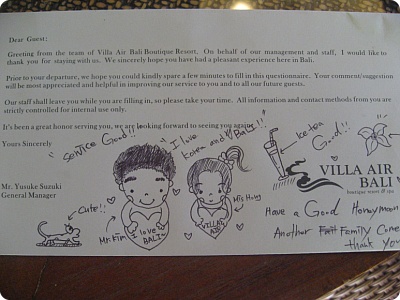 Dear Guest:
Greeting from the team of Villa Air Bali Boutique Resort, On behalf of our management and staff, I would like to
thank you for staying with us. We sincerely hope you have had a pleasant experience here in Bali.
Prior to your departure, we hope you could kindly spare a few minutes to fill in this questionnaire. Your comment/suggestion
will be most appreciated and helpful in improving our service to you and to all our future guests.
Our staff shall leave you while you are filling in, so please take your time. All information and contact methods from you are
strictly controlled for internal use only.
It's been a great honor serving you, we are looking forward to seeing you again.
Yours Sincerely
"Service Good!!"
"I love
Korea and Bali!!"
Ice tea
Good!!
Mr. Yusuke Suzuki
General Manager
VILLA AIR
BALI
boutique resort & spa
Cute!!
Mr. Kim
I love
BALI
VILLA
AIR
Have a Good Honeymoon
Another Family Come
thank You